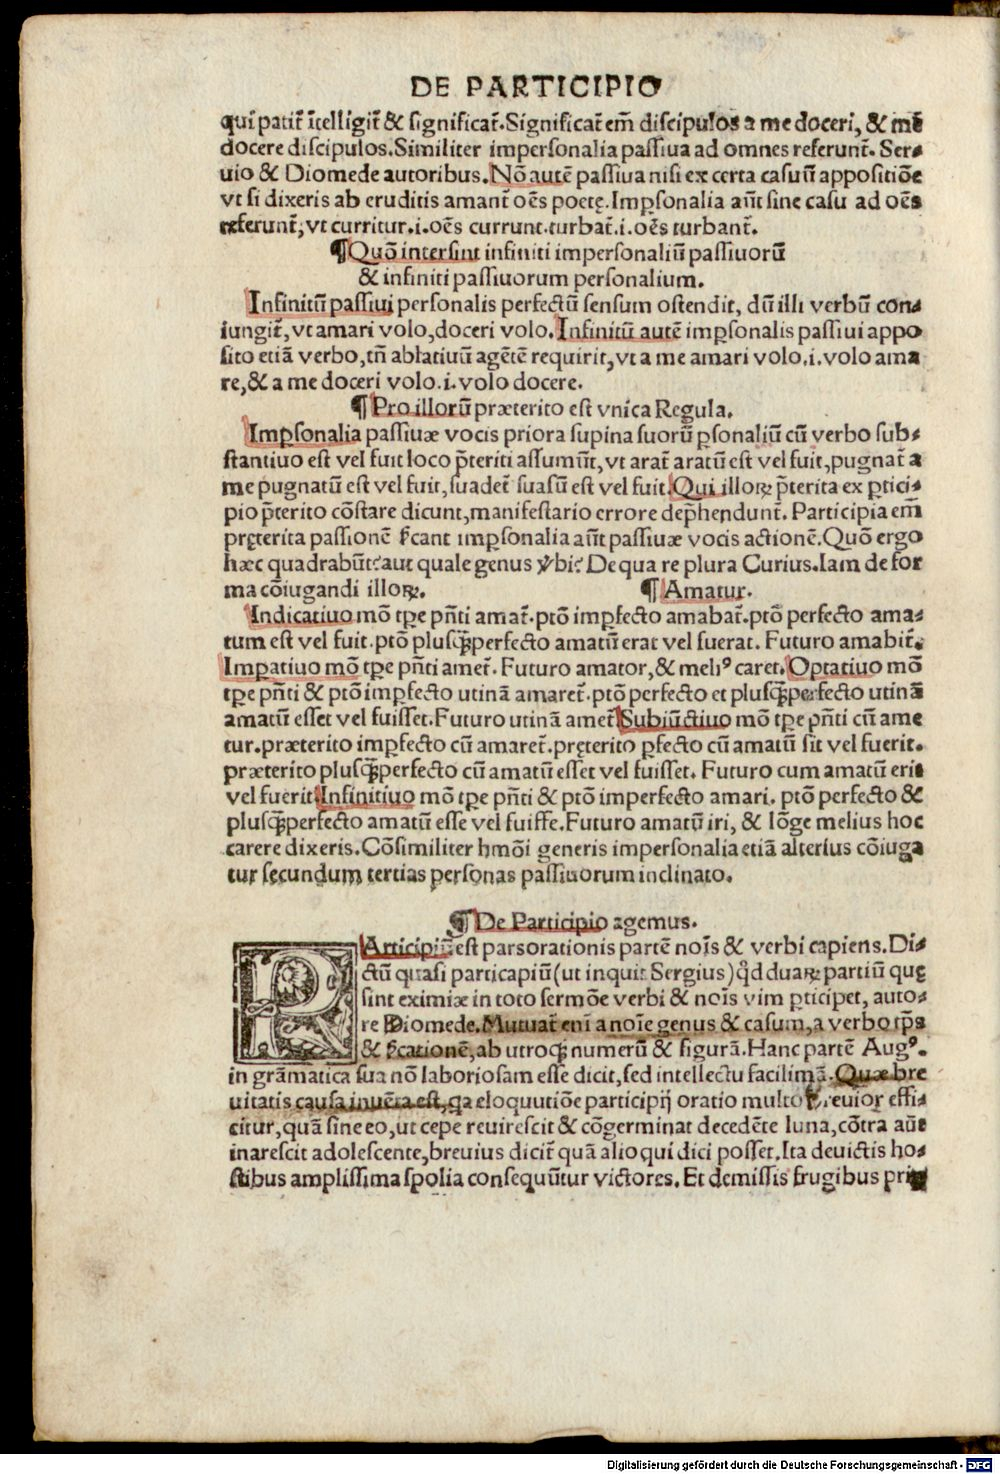 DE PARTICIPIO
qui patit̃ ĩtelligit̃ & significat̃. Significat̃ em̃ discipulos a me doceri, & mẽ
docere discipulos. Similiter impersonalia passiua ad omnes referunt̃. Ser-
uio & Diomede autoribus. Nõ autẽ passiua nisi ex certa casuũ appositiõe
vt si dixeris ab eruditis amant̃ oẽs poetę. Imp̱sonalia aũt sine casu ad oẽs
referunt̃, vt curritur .i. oẽs currunt. turbat̃ .i. oẽs turbant̃.
¶ Quõ intersint infiniti impersonaliũ passiuorũ
& infiniti passiuorum personalium.
Infinitũ passiui personalis perfectũ sensum ostendit, dũ illi verbũ con-
iungit̃, vt amari volo, doceri volo. Infinitũ autẽ imp̱sonalis passiui appo
sito etiã verbo, tñ ablatiuũ agẽtẽ requirit, vt a me amari volo .i. volo ama
re, & a me doceri volo .i. volo docere.
¶ Pro illorũ præterito est vnica Regula.
Imp̱sonalia passiuæ vocis priora supina suorũ p̱sonaliũ cũ verbo sub-
stantiuo est vel fuit loco p̃teriti assumũt, vt arat̃ aratũ est vel fuit, pugnat̃ a
me pugnatũ est vel fuit, suadet̃ suasũ est vel fuit. Qui illoꝝ p̃terita ex p̱tici-
pio p̃terito cõstare dicunt, manifestario errore dep̃hendunt̃. Participia em̃
pręterita passionẽ s̃cant imp̱sonalia aũt passiuæ vocis actionẽ. Quõ ergo
hæc quadrabũt: aut quale genus ỹbi? De qua re plura Curius. Iam de for
ma cõiugandi illoꝝ. ¶ Amatur.
Indicatiuo mõ tp̱e pñti amat̃. ptõ imp̱fecto amabat̃. ptõ perfecto ama-
tum est vel fuit. ptõ plusq̃perfecto amatũ erat vel fuerat. Futuro amabit̃.
Imp̱atiuo mõ tp̱e pñti amet̃. Futuro amator, & meliꝰ caret. Optatiuo mõ
tp̱e pñti & ptõ imp̱fecto utinã amaret̃. ptõ perfecto et plusq̃perfecto utinã
amatũ esset vel fuisset. Futuro utinã amet̃. Subiũctiuo mõ tp̱e pñti cũ ame
tur. præterito imp̱fecto cũ amaret̃. pręterito p̱fecto cũ amatũ sit vel fuerit.
præterito plusq̃perfecto cũ amatũ esset vel fuisset. Futuro cum amatũ erit
vel fuerit. Infinitiuo mõ tp̱e pñti & ptõ imperfecto amari. ptõ perfecto &
plusq̃perfecto amatũ esse vel fuisse. Futuro amatũ iri, & lõge melius hoc
carere dixeris. Cõsimiliter hmõi generis impersonalia etiã alterius cõiuga
tur secundum tertias personas passiuorum inclinato.
¶ De Participio agemus.
PArticipiũ est pars orationis partẽ noĩs & verbi capiens. Di-
ctũ quasi particapiũ (ut inquit Sergius) q̃d duaꝝ partiũ quę
sint eximiæ in toto sermõe verbi & noĩs vim p̱ticipet, auto-
re Diomede. Mutuat̃ eni a noĩe genus & casum, a verbo tp̃s
& s̃cationẽ, ab utroq̃ numerũ & figurã. Hanc partẽ Augꝰ.
in grãmatica sua nõ laboriosam esse dicit, sed intellectu facilimã. Quæ bre
uitatis causa inuẽta est, qa eloquutiõe participij oratio multo breuior effi-
citur, quã sine eo, ut cepe reuirescit & cõgerminat decedẽte luna, cõtra aũt
inarescit adolescente, breuius dicit̃ quã alioqui dici posset. Ita deuictis ho-
stibus amplissima spolia consequũtur victores. Et demissis frugibus
Digitalisierung gefördert durch die Deutsche Forschungsgemeinschaft - DFG